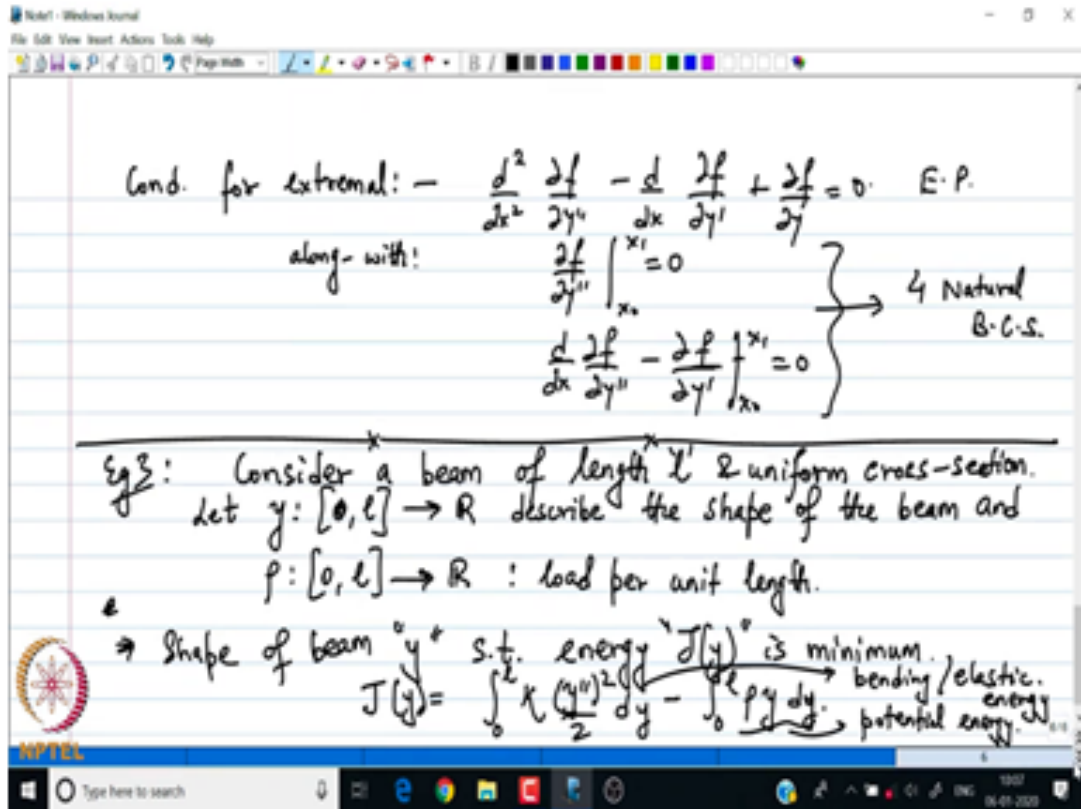 Note1 - Windows Journal
File Edit View Insert Actions Tools Help
Page Width
Cond. for extremal: - d²/dx² ∂f/∂y'' - d/dx ∂f/∂y' + ∂f/∂y = 0. E.P.
along-with: ∂f/∂y'' |_{x₀}^{x₁} = 0
d/dx ∂f/∂y'' - ∂f/∂y' |_{x₀}^{x₁} = 0
4 Natural
B.C.S.
Eg3: Consider a beam of length 'l' & uniform cross-section.
Let y: [0, l] → R describe the shape of the beam and
ρ: [0, l] → R : load per unit length.
⇒ Shape of beam "y" s.t. energy "J(y)" is minimum.
J(y) = ∫₀^l K (y'')²/2 dy - ∫₀^l ρy dy.
bending/elastic energy
potential energy.
NPTEL
6
Type here to search
ENG
10:07
06-01-2020